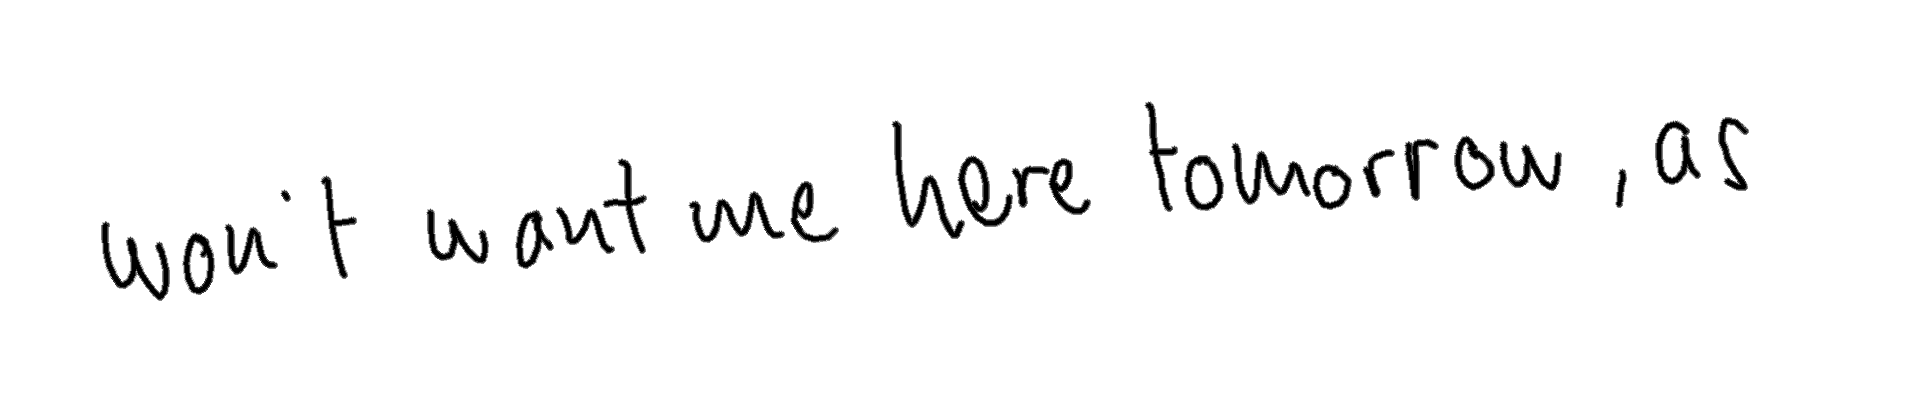 won't want me here tomorrow, as